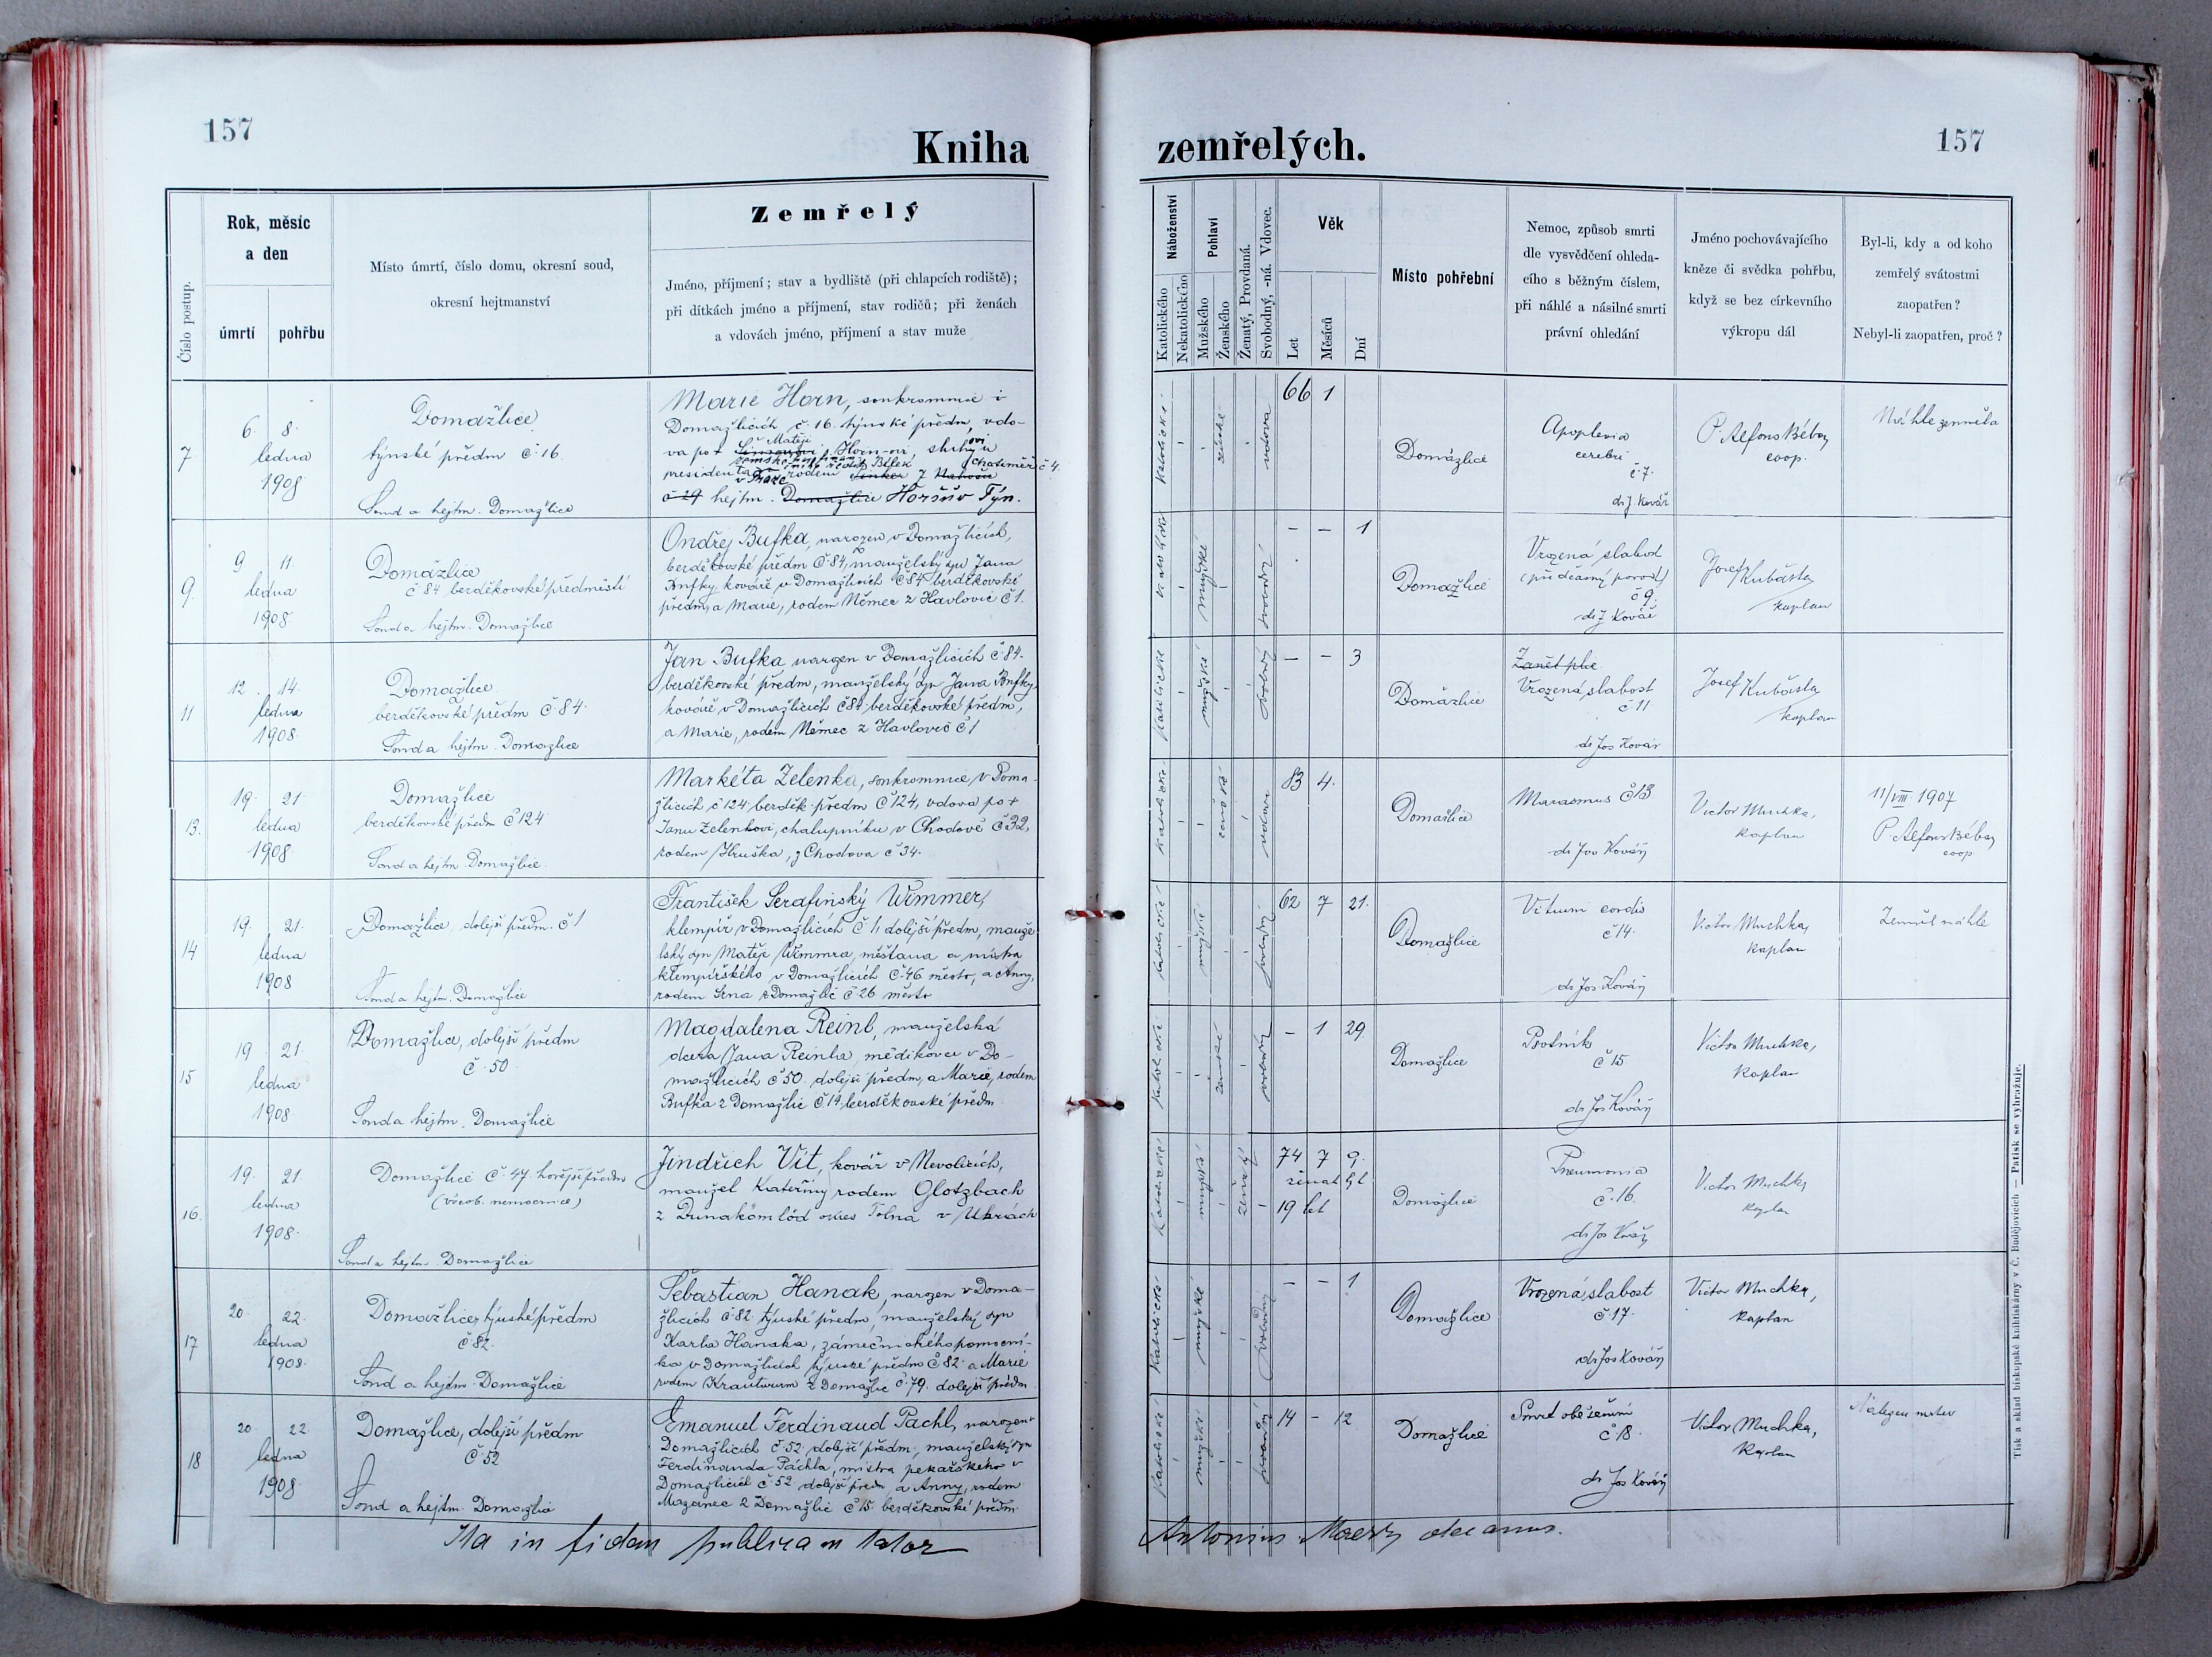 157
Kniha
zemřelých.
157
Číslo postup.
Rok, měsíc
a den
úmrtí
pohřbu
Místo úmrtí, číslo domu, okresní soud,
okresní hejtmanství
Zemřelý
Jméno, příjmení; stav a bydliště (při chlapcích rodiště);
při dítkách jméno a příjmení, stav rodičů; při ženách
a vdovách jméno, příjmení a stav muže
Náboženství
Katolického
Nekatolického
Pohlaví
Mužského
Ženského
Ženatý, Provdaná.
Svobodný, -ná. Vdovec.
Věk
Let
Měsíců
Dní
Místo pohřební
Nemoc, způsob smrti
dle vysvědčení ohleda-
cího s běžným číslem,
při náhlé a násilné smrti
právní ohledání
Jméno pochovávajícího
kněze či svědka pohřbu,
když se bez církevního
výkropu dál
Byl-li, kdy a od koho
zemřelý svátostmi
zaopatřen?
Nebyl-li zaopatřen, proč?
7
6. 8.
ledna
1908
Domažlice
týnské předm č 16.
Soud a hejtm. Domažlice
Marie Horn, soukromnice v
Domažlicích č. 16. týnské předm, vdo-
va po + Matěji Horn-ovi, sluhovi
presidenta v Praze rodem Bílek z Chotiměř č 4.
č 29 hejtm. Domažlice Horšův Týn.
katolické
ženské
vdova
66 1
Domažlice
Apoplexia
cerebri
č 7.
dr J. Kovář
P. Alfons Béba
coop.
Náhle zemřela
9
9 11.
ledna
1908
Domažlice
č 84 berděkovské předměstí
Soud a hejtm. Domažlice
Ondřej Bufka, narozen v Domažlicích,
berděkovské předm č 84, manželský syn Jana
Bufky, kováře v Domažlicích č 84 berděkovské
předm, a Marie, rodem Němec z Havlovic č 1.
katolické
mužské
svobodný
– – 1
Domažlice
Vrozená slabost
(předčasný porod)
č 9.
dr J Kovář
Josef Kubásta
kaplan
11
12. 14.
ledna
1908
Domažlice
berděkovské předm č 84.
Soud a hejtm. Domažlice
Jan Bufka narozen v Domažlicích č 84.
berděkovské předm, manželský syn Jana Bufky,
kováře v Domažlicích č 84 berděkovské předm,
a Marie, rodem Němec z Havlovic č 1
katolické
mužské
svobodný
– – 3
Domažlice
Zánět plic
Vrozená slabost
č 11
dr Jos Kovář
Josef Kubásta
kaplan
13.
19. 21.
ledna
1908
Domažlice
berděkovské předm č 124
Soud a hejtm. Domažlice
Markéta Zelenka, soukromnice v Doma-
žlicích č 124 berděk. předm č 124, vdova po +
Janu Zelenkovi, chalupníku v Chodově č 32,
rodem Hruška, z Chodova č 34.
katolické
ženské
vdova
83 4.
Domažlice
Marasmus č 13
dr Jos Kovář
Victor Muchka,
kaplan
11/VIII 1907
P. Alfons Béba
coop
14
19. 21.
ledna
1908
Domažlice, dolejší předm. č 1
Soud a hejtm. Domažlice
František Serafinský Wimmer,
klempíř v Domažlicích č 1, dolejší předm, manže
lský syn Matěje Wimmra, měšťana a mistra
klempířského v Domažlicích č 46 město, a Anny,
rodem Srna z Domažlic č 26 město
katolické
mužské
svobodný
62 7 21.
Domažlice
Vitium cordis
č 14.
dr Jos Kovář
Victor Muchka,
kaplan
Zemřel náhle
15
19. 21.
ledna
1908
Domažlice, dolejší předm
č. 50.
Soud a hejtm. Domažlice
Magdalena Reinl, manželská
dcera Jana Reinla, mědikovce v Do-
mažlicích č 50. dolejší předm, a Marie, rodem
Bufka z Domažlic č. 14 berděkovské předm
katolické
ženské
svobodný
– 1 29
Domažlice
Psotník
č 15
dr Jos Kovář
Victor Muchka,
kaplan
16.
19. 21
ledna
1908.
Domažlice č 47. hořejší předm
(všeob. nemocnice)
Soud a hejtm. Domažlice
Jindřich Vít, kovář v Nevolicích,
manžel Kateřiny rodem Glotzbach
z Dunakömlöd okres Tolna v Uhrách
katolické
mužské
ženatý
74 7 9.
ženat byl
19 let
Domažlice
Pneumonia
č. 16.
dr Jos Kovář
Victor Muchka
kaplan
17
20. 22.
ledna
1908.
Domažlice, týnské předm
č 82.
Soud a hejtm. Domažlice
Šebastian Hanak, narozen v Doma-
žlicích č 82. týnské předm, manželský syn
Karla Hanaka, zámečnického pomocní-
ka v Domažlicích týnské předm č 82. a Marie
rodem Krautwurm z Domažlic č. 79. dolejší předm
katolické
mužské
svobodný
– – 1
Domažlice
Vrozená slabost
č 17.
dr Jos Kovář
Victor Muchka,
kaplan
18
20. 22.
ledna
1908
Domažlice, dolejší předm
č 52
Soud a hejtm. Domažlice
Emanuel Ferdinand Pachl, narozen v
Domažlicích č. 52. dolejší předm, manželský syn
Ferdinanda Pachla, mistra pekařského v
Domažlicích č 52. dolejší předm a Anny, rodem
Mazanec z Domažlic č 15. berděkovské předm.
katolické
mužské
svobodný
14 – 12
Domažlice
Smrt oběšením
č 18.
dr Jos Kovář
Victor Muchka,
kaplan
Nalezen mrtev
Ita in fidem publicam testor
Antonius decanus.
Tisk a sklad biskupské knihtiskárny v Č. Budějovicích — Patisk se vyhražuje.